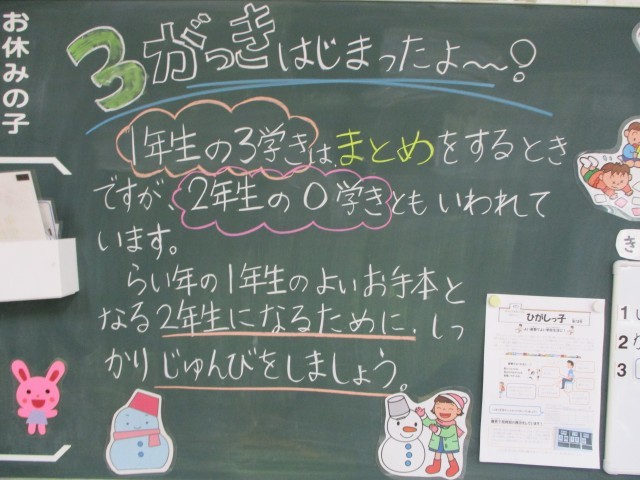 お休みの子
3がっきはじまったよ～！
1年生の3学きは、まとめをするとき
ですが、2年生の0学きともいわれて
います。
らい年の1年生のよいお手本と
なる2年生になるために、しっ
かりじゅんびをしましょう。
ひがしっ子
き
1
2
3